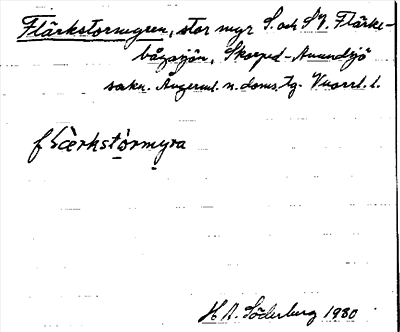 Flärkstormyren, stor myr S. och SV. Flärke-
bågasjön, Skorped-Anundsjö
sakn. Ångerml. n. doms. tg. Vnorrl. l.
flærkstòrmyra
H A. Söderberg 1930